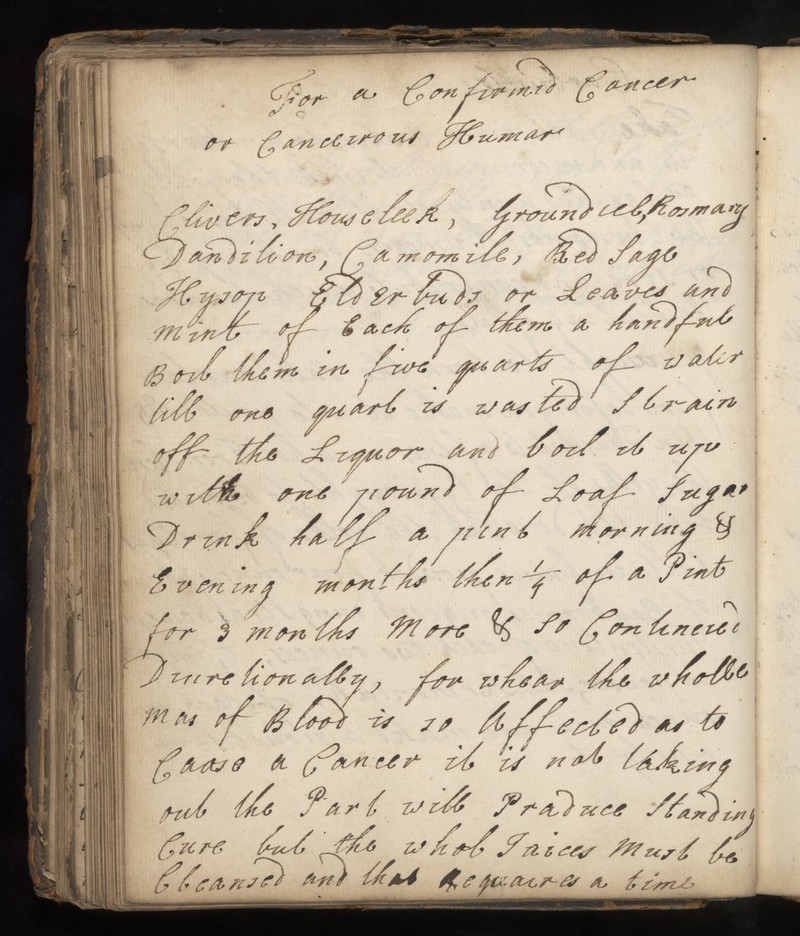 For a Confirmid Cancer
or Cancerrous Humar
Clivers, Houseleek, Groundcel, Rosmary
Dandilion, Camomile, Red Sage
Hysop Elder buds or Leaves and
mint of Each of them a handful
Boil them in five quarts of water
till one quart is wasted Strain
off the Liquor and boil it up
with one pound of Loaf Sugar
Drink half a pint morning &
Evening months then 1/4 of a Pint
for 3 months More & So Contineued
Discretionally, for whear the wholle
mas of Blood is so Affected as to
Caose a Cancer it is not taking
out the Part will Praduce Standing
Cure but the whol Jaices Must be
Cleansed and that Requaires a time